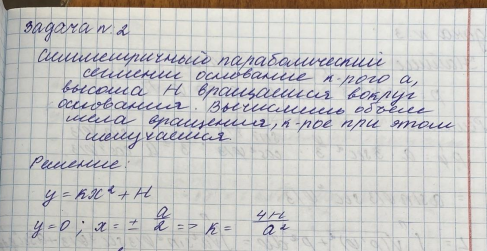 Задача №2
Симметричный параболический
сегмент основание к-рого a,
высота H вращается вокруг
основания. Вычислить объем
тела вращения, к-рое при этом
получается
Решение:
y = kx² + H
y=0 ; x = ± a/2 => k = 4H/a²